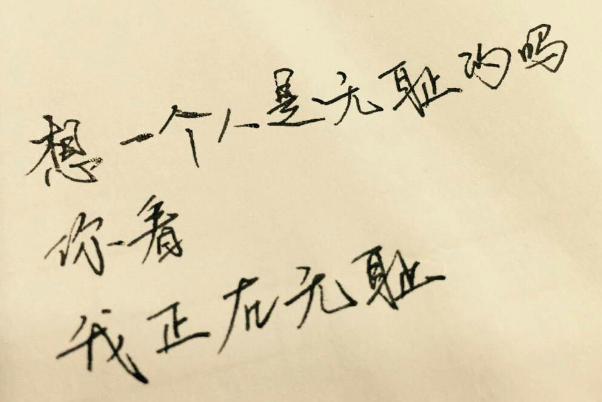 想一个人是无耻的吗
你看
我正在无耻